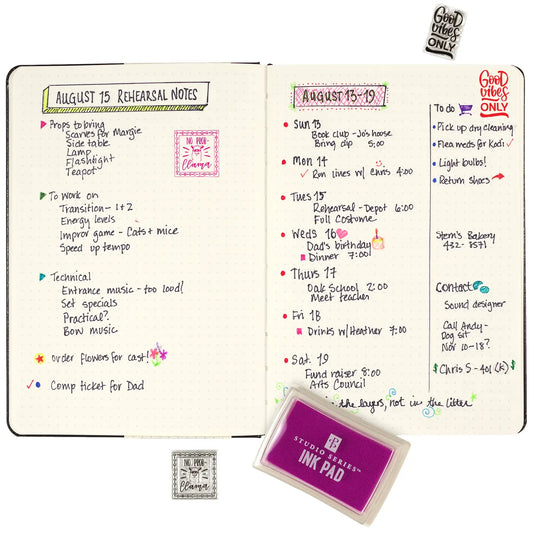 GOOD
Vibes
ONLY
AUGUST 15 REHEARSAL NOTES
Props to bring
Scarves for Margie
Side table
Lamp
Flashlight
Teapot
NO PROB-
Llama
To work on
Transition - 1+2
Energy levels
Improv game - Cats + mice
Speed up tempo
Technical
Entrance music - too loud!
Set specials
Practical?
Bow music
order flowers for cast!
Comp ticket for Dad
AUGUST 13-19
Sun 13
Book club - Jo's house
Bring dip 5:00
Mon 14
Rm lines w/ Chris 4:00
Tues 15
Rehearsal - Depot 6:00
Full Costume
Weds 16
Dad's birthday
Dinner 7:00
Thurs 17
Oak School 2:00
Meet teacher
Fri 18
Drinks w/Heather 7:00
Sat. 19
Fund raiser 8:00
Arts Council
the layers, not in the litter
GOOD
Vibes
ONLY
To do
Pick up dry cleaning
Flea meds for Kodi
Light bulbs!
Return shoes
Stern's Bakery
432-8571
Contact
Sound designer
Call Andy-
Dog sit
Nov 10-18?
$ Chris S - 401(k) $
NO PROB-
Llama
STUDIO SERIES™
INK PAD